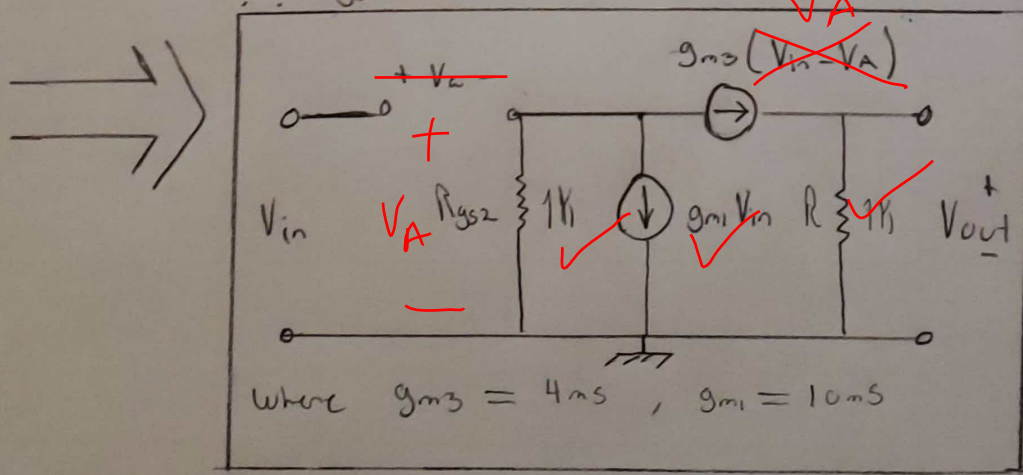 VA
gm3(Vin-VA)
+ V -
+
Vin
VA
Rgs2
1K
gm1Vin
R
1K
+
Vout
-
-
where gm3 = 4ms , gm1 = 10mS